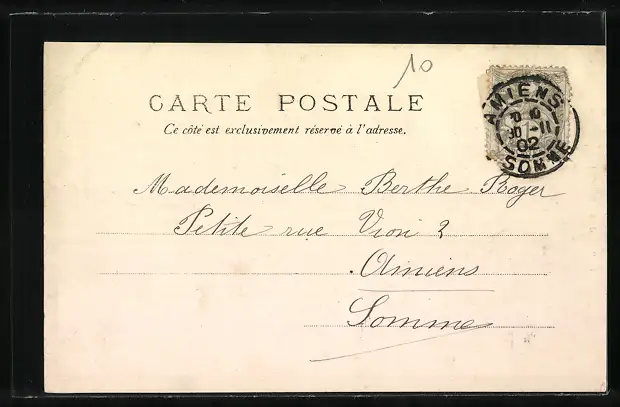 10
CARTE POSTALE
Ce côté est exclusivement réservé à l'adresse.
AMIENS
11
02
SOMME
Mademoiselle Berthe Roger
Petite rue 2
Amiens
Somme